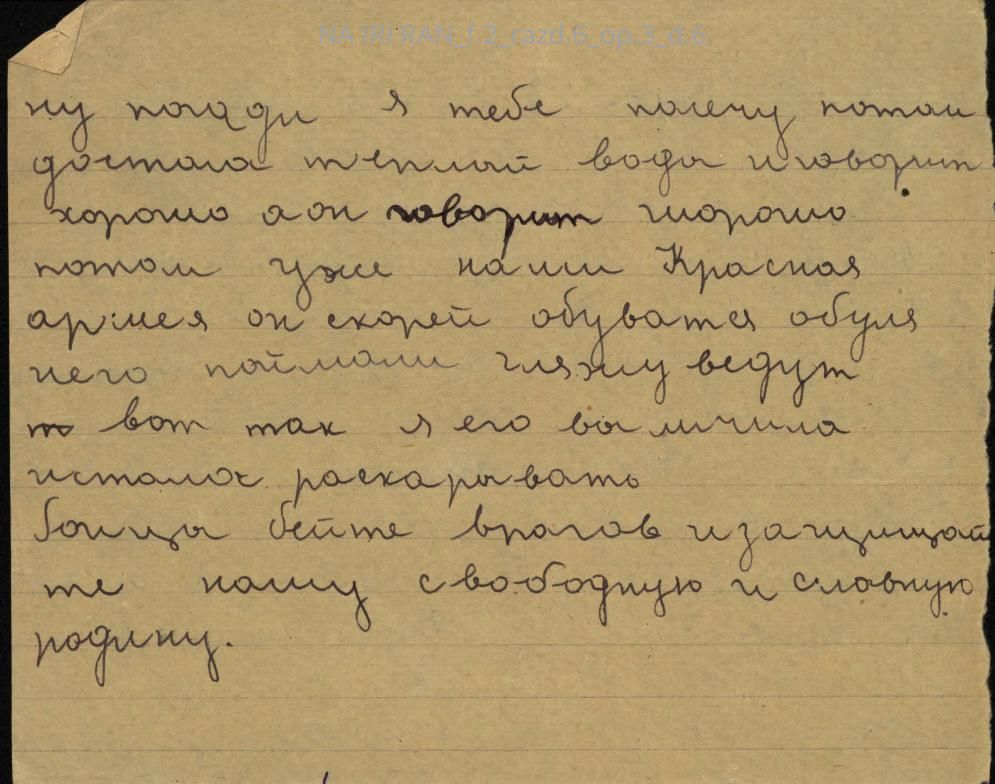 NA IRI RAN_f.2_razd.6_op.3_d.6
ну погади я тебе полечу потом
достала теплой воды и говорит
хорошо а он говорит хорошо
потом уже наши Красная
армея он скорей обуватся обуля
него поймали гляжу ведут
вот так я его выличила
и стала раскарывать
бойцы бейте врагов и защищай
те нашу свободную и славную
родину.